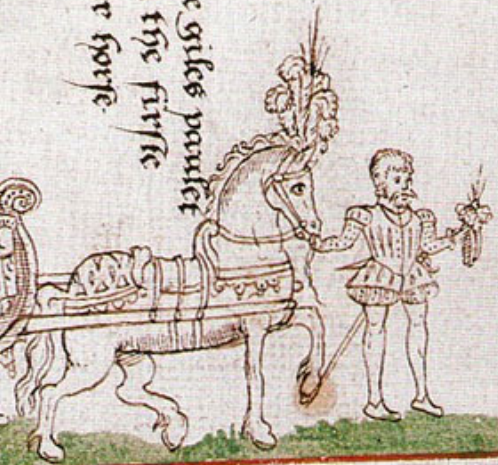 giles paulet
the firste
horse